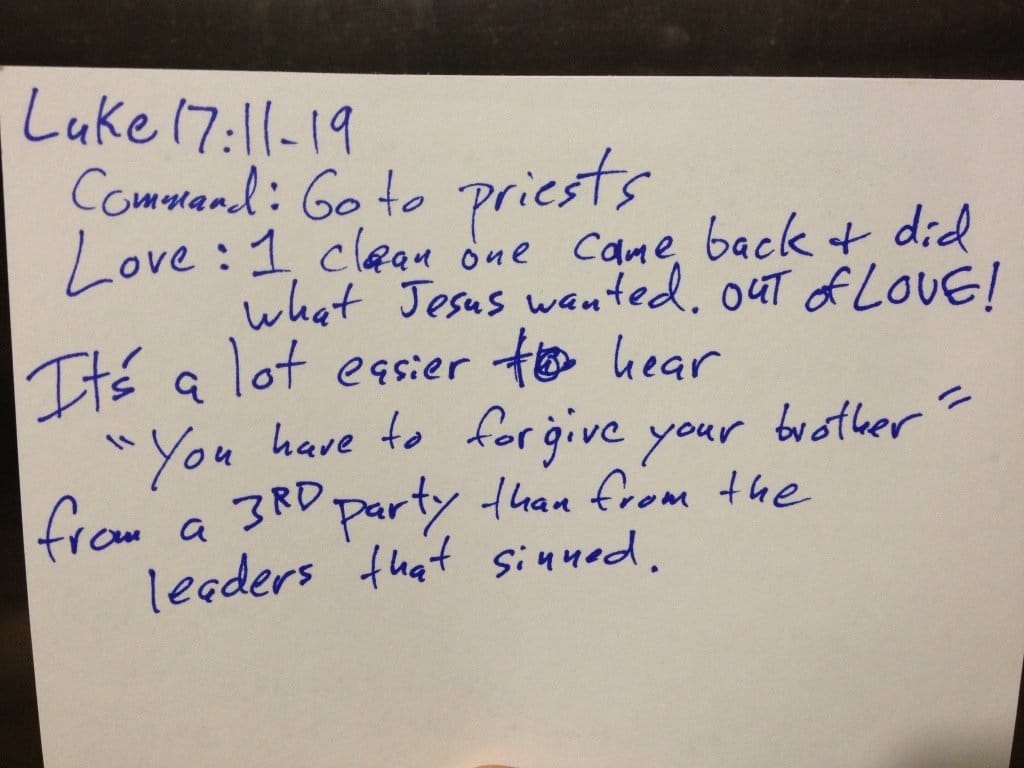 Luke 17:11-19
Command: Go to priests
Love: 1 clean one came back + did
what Jesus wanted. OUT of LOVE!
It's a lot easier to hear
"You have to forgive your brother"
from a 3RD party than from the
leaders that sinned.